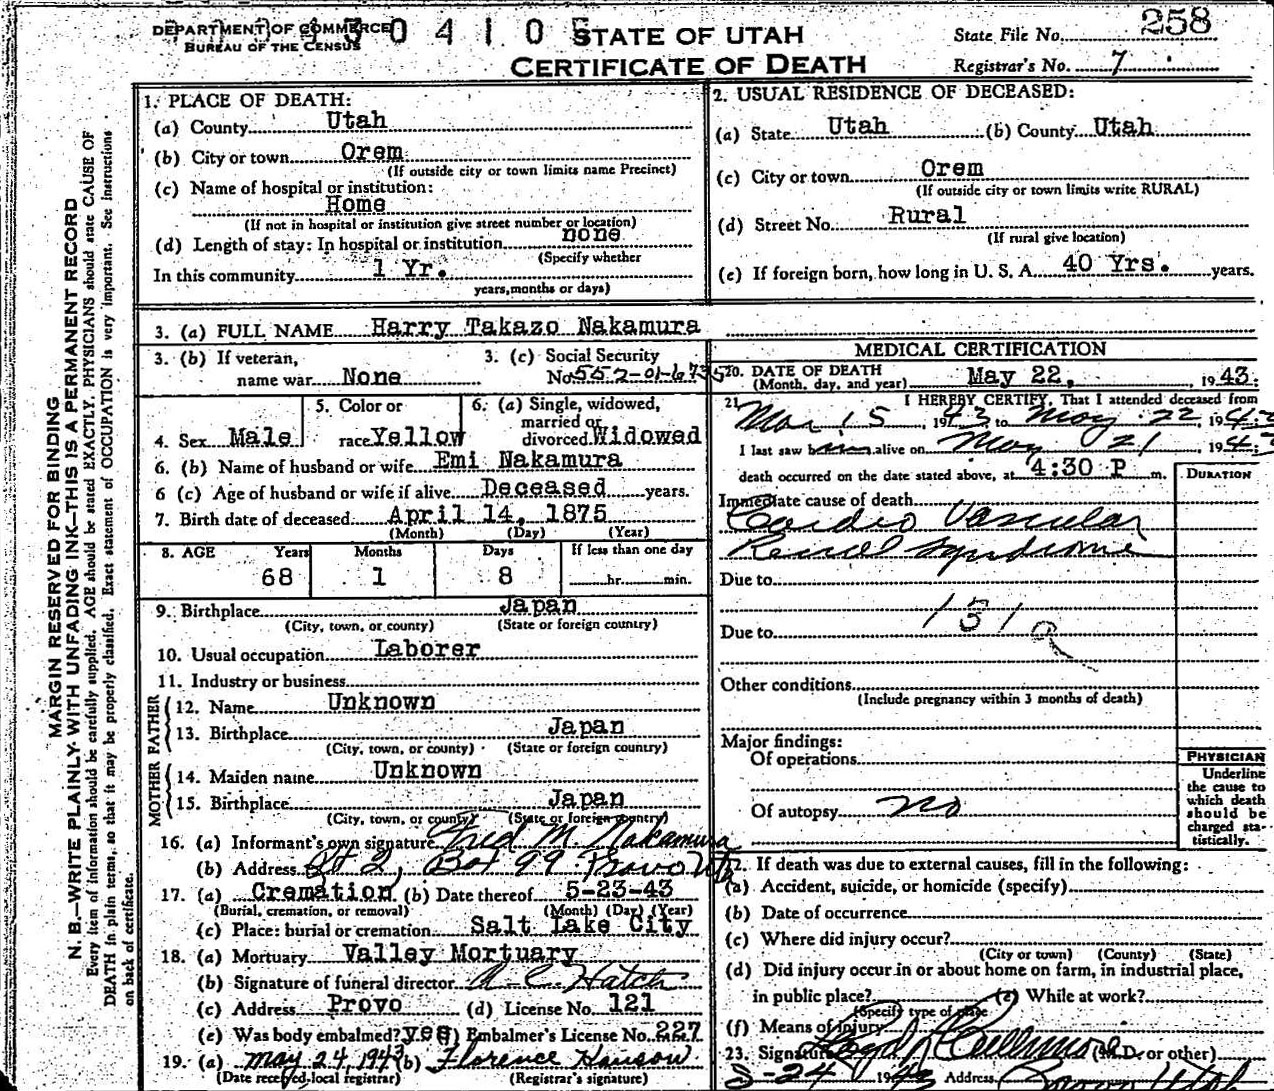 DEPARTMENT OF COMMERCE
BUREAU OF THE CENSUS
3 0 4 1 0 5
STATE OF UTAH
CERTIFICATE OF DEATH
State File No. 258
Registrar's No. 7
MARGIN RESERVED FOR BINDING
N. B.—WRITE PLAINLY WITH UNFADING INK—THIS IS A PERMANENT RECORD
Every item of information should be carefully supplied. AGE should be stated EXACTLY. PHYSICIANS should state CAUSE OF
DEATH in plain terms, so that it may be properly classified. Exact statement of OCCUPATION is very important. See instructions
on back of certificate.
1. PLACE OF DEATH:
(a) County Utah
(b) City or town Orem
(If outside city or town limits name Precinct)
(c) Name of hospital or institution:
Home
(If not in hospital or institution give street number or location)
(d) Length of stay: In hospital or institution none
(Specify whether
In this community 1 Yr.
years, months or days)
2. USUAL RESIDENCE OF DECEASED:
(a) State Utah (b) County Utah
(c) City or town Orem
(If outside city or town limits write RURAL)
(d) Street No. Rural
(If rural give location)
(e) If foreign born, how long in U. S. A. 40 Yrs. years.
3. (a) FULL NAME Harry Takazo Nakamura
3. (b) If veteran,
name war None
3. (c) Social Security
No. 552-01-6735
4. Sex Male
5. Color or
race Yellow
6. (a) Single, widowed,
married or
divorced Widowed
6. (b) Name of husband or wife Emi Nakamura
6 (c) Age of husband or wife if alive Deceased years.
7. Birth date of deceased April 14, 1875
(Month) (Day) (Year)
8. AGE Years Months Days If less than one day
68 1 8 hr. min.
9. Birthplace Japan
(City, town, or county) (State or foreign country)
10. Usual occupation Laborer
11. Industry or business
FATHER
12. Name Unknown
13. Birthplace Japan
(City, town, or county) (State or foreign country)
MOTHER
14. Maiden name Unknown
15. Birthplace Japan
(City, town, or county) (State or foreign country)
16. (a) Informant's own signature Fred M. Nakamura
(b) Address Rt 2, Box 99 Provo Ut
17. (a) Cremation (b) Date thereof 5-23-43
(Burial, cremation, or removal) (Month) (Day) (Year)
(c) Place: burial or cremation Salt Lake City
18. (a) Mortuary Valley Mortuary
(b) Signature of funeral director Hatch
(c) Address Provo (d) License No. 121
(e) Was body embalmed? yes (f) Embalmer's License No. 227
19. (a) May 24, 1943 (b) Florence
(Date received local registrar) (Registrar's signature)
MEDICAL CERTIFICATION
20. DATE OF DEATH
(Month, day, and year) May 22, 1943.
21. I HEREBY CERTIFY, That I attended deceased from
Mar 15, 1943, to May 22, 1943
I last saw him alive on May 21, 1943
death occurred on the date stated above, at 4:30 P m.
DURATION
Immediate cause of death
Cardio Vascular
Renal Syndrome
Due to
131a
Due to
Other conditions
(Include pregnancy within 3 months of death)
Major findings:
Of operations
Of autopsy no
PHYSICIAN
Underline
the cause to
which death
should be
charged sta-
tistically.
22. If death was due to external causes, fill in the following:
(a) Accident, suicide, or homicide (specify)
(b) Date of occurrence
(c) Where did injury occur?
(City or town) (County) (State)
(d) Did injury occur in or about home on farm, in industrial place,
in public place? (e) While at work?
(Specify type of place
(f) Means of injury
23. Signature Lloyd L Cullimore (M.D. or other)
5-24 1943 Address Provo Utah